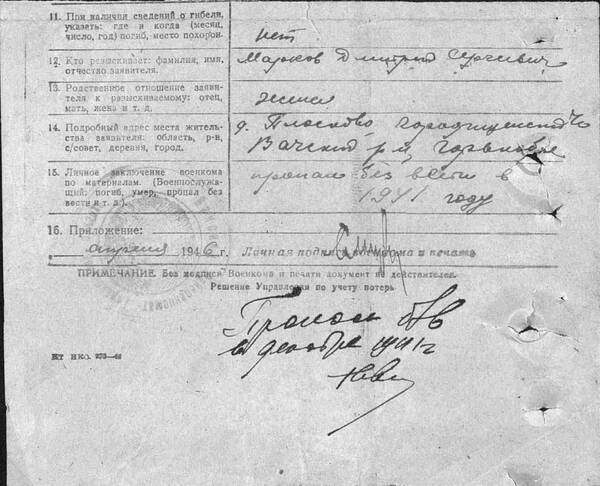 11. При наличии сведений о гибели,
указать: где и когда (месяц,
число, год) погиб, место похорон.
нет
12. Кто разыскивает: фамилия, имя,
отчество заявителя.
Марков Дмитрий Сергеевич
13. Родственное отношение заяви-
теля к разыскиваемому: отец,
мать, жена и т. д.
14. Подробный адрес места житель-
ства заявителя: область, р-н,
с/совет, деревня, город.
д. Плосково,
Вачский р-н,
15. Личное заключение военкома
по материалам. (Военнослужа-
щий: погиб, умер, пропал без
вести и т. д.)
пропал без вести в
1941 году
16. Приложение:
апреля 1946 г. Личная подпись и печать
ПРИМЕЧАНИЕ. Без подписи Военкома и печати документ не действителен.
Решение Управления по учету потерь
Пропал б/в
в декабре 1941 г